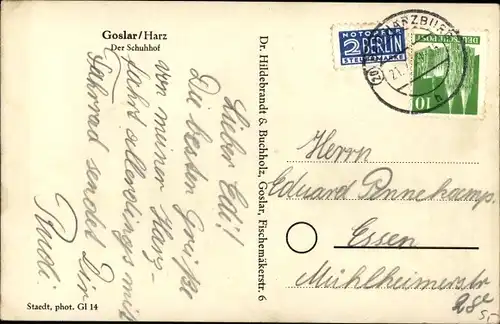 Goslar/Harz
Der Schuhhof
Lieber Edi!
Die besten Grüße
von meiner Harz-
fahrt allerdings mit
Fahrrad sendet Dir
Rudi.
Staedt, phot. Gl 14
Dr. Hildebrandt & Buchholz, Goslar, Fischemäkerstr. 6
NOTOPFER
2 BERLIN
STEUERMARKE
HARZBURG
DEUTSCHE POST
10
Herrn
Eduard Pennekamp.
Essen
Mühlheimerstr